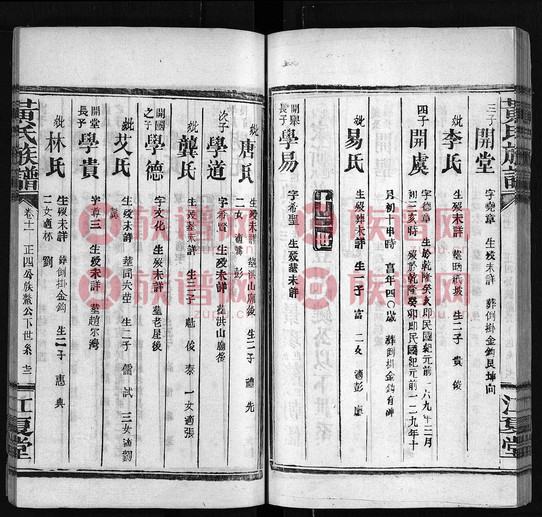 黃氏族譜
三子 開堂 字堯章 生歿未詳 葬倒掛金鈎艮埠向
妣 李氏 生歿未詳 生二子 貴 俊
四子 開虞 字德章 生於乾隆癸亥即民國紀元前一六九年三月
初三亥時 歿於乾隆癸卯即民國紀元前一二九年十
月初十申時 享年四〇歲 葬倒掛金鈎有碑
妣 易氏 生歿葬未詳 生一子 富 二女 適彭 廖
開舉長子 學易 字希聖 生歿葬未詳
妣 唐氏 生歿未詳 生二子 禮 先
二女 適 彭
次子 學道 字希賢 生歿未詳 葬洪山廟後
妣 龔氏 生歿葬未詳 生三子 魁 俊 泰 一女適張
開國之子 學德 字文化 生歿未詳 墓老屋後
妣 艾氏 生歿未詳 墓同夫塋 生二子 儒 試 三女適劉
開堂長子 學貴 字尊三 生歿未詳 墓趙尔灣
妣 林氏 生歿未詳 葬倒掛金鈎 生二子 惠 典
二女適林 劉
黃氏族譜 卷十一 正四公族
江夏堂
族谱网
zupu.cn